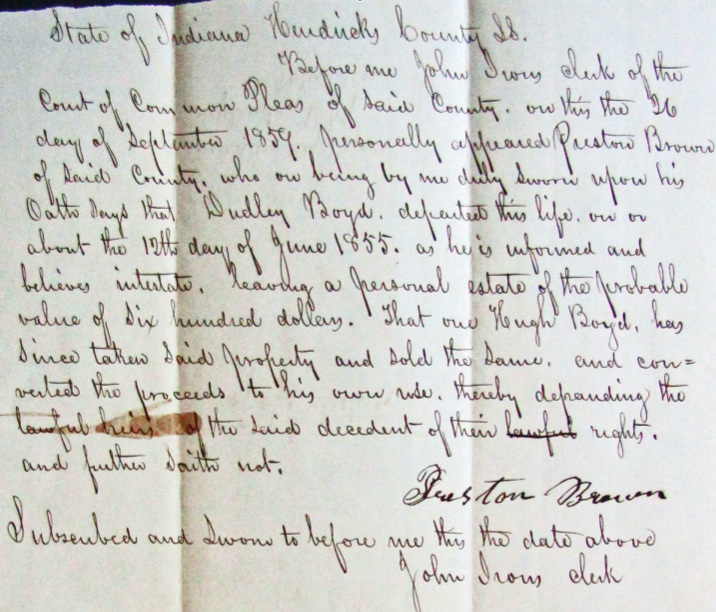 State of Indiana Hendricks County SS.
Before me John Irons clerk of the
Court of Common Pleas of said County. on this the 26
day of September 1859. personally appeared Preston Brown
of said County, who on being by me duly sworn upon his
Oath Says that Dudley Boyd. departed this life. on or
about the 12th day of June 1855. as he is informed and
believes intestate, leaving a personal estate of the probable
value of Six hundred dollars. That one Hugh Boyd, has
Since taken said property and sold the Same. and con=
verted the proceeds to his own use. thereby defrauding the
lawful heirs of the said decedent of their lawful rights.
and further saith not.
Preston Brown
Subscribed and Sworn to before me this the date above
John Irons clerk